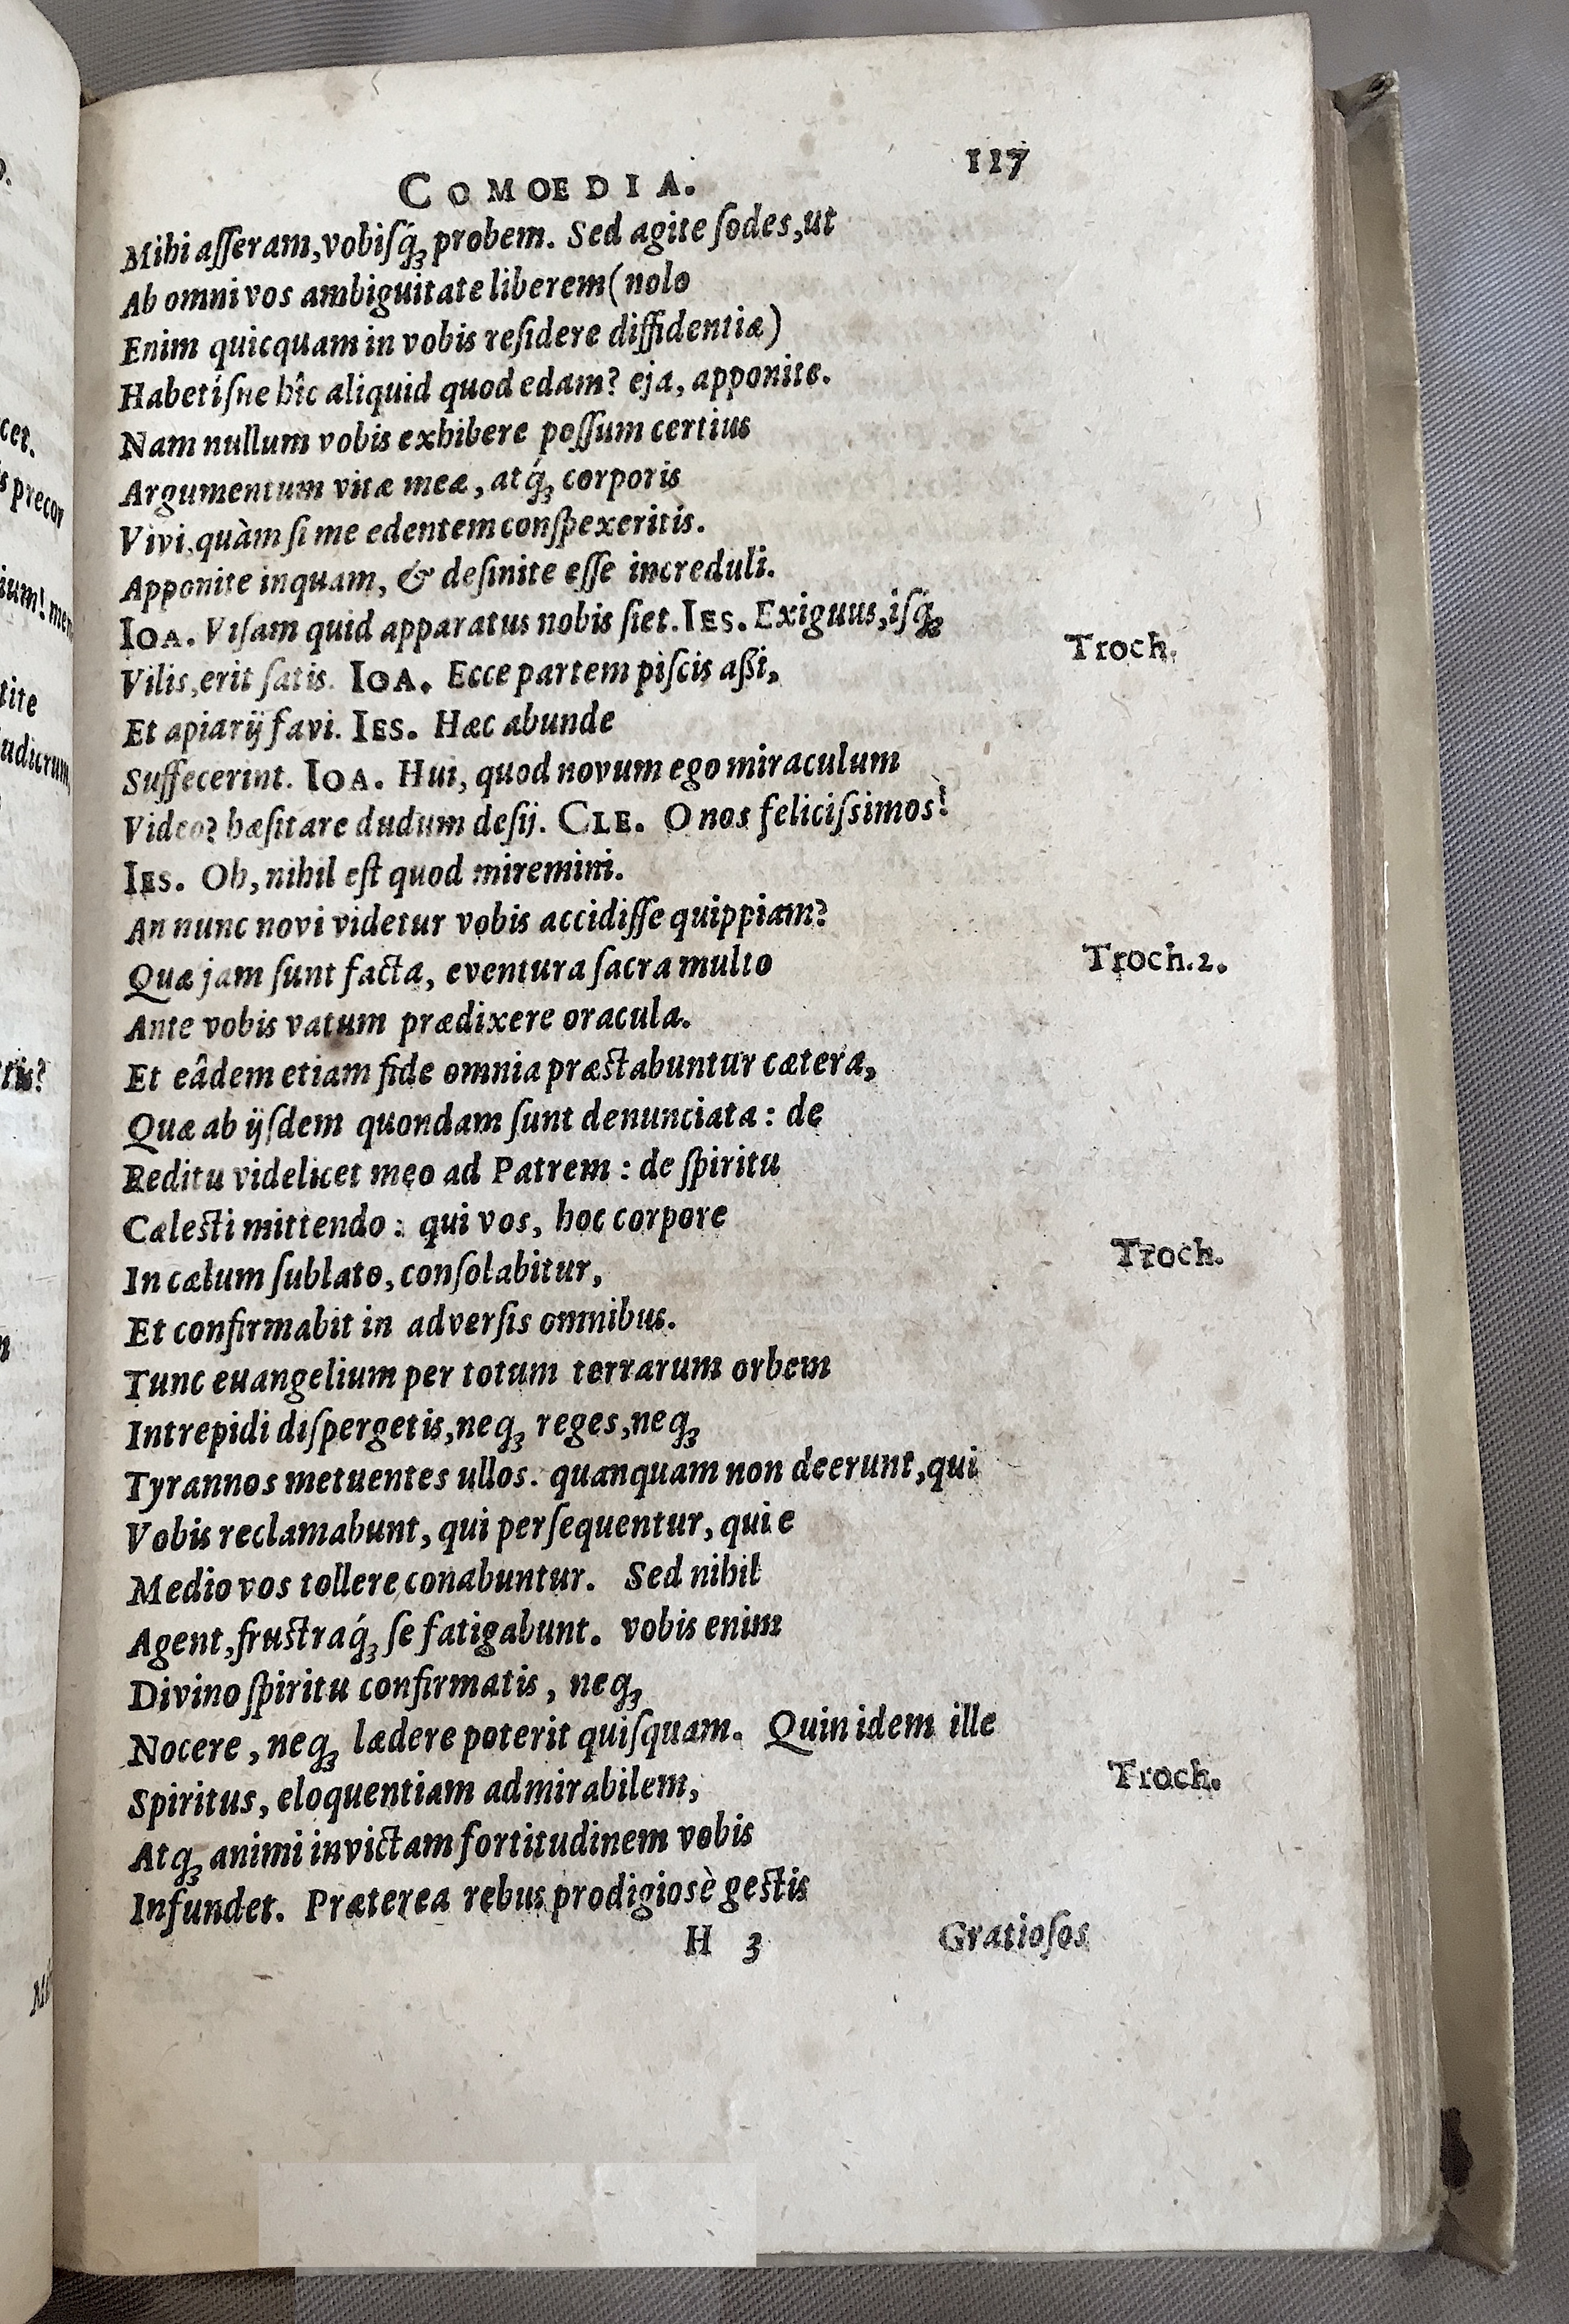 COMOEDIA. 117
Mihi aſſeram, vobiſq́ꝫ probem. Sed agite ſodes, ut
Ab omni vos ambiguitate liberem (nolo
Enim quicquam in vobis reſidere diffidentiæ)
Habetiſne hîc aliquid quod edam? eja, apponite.
Nam nullum vobis exhibere poſſum certius
Argumentum vitæ meæ, atq́ꝫ corporis
Vivi, quàm ſi me edentem conſpexeritis.
Apponite inquam, & deſinite eſſe increduli.
IOA. Viſam quid apparatus nobis ſiet. IES. Exiguus, iſq́ꝫ
Troch.
Vilis, erit ſatis. IOA. Ecce partem piſcis aßi,
Et apiarij favi. IES. Hæc abunde
Suffecerint. IOA. Hui, quod novum ego miraculum
Video? hæſitare dudum deſij. CLE. O nos feliciſsimos!
IES. Oh, nihil eſt quod miremini.
An nunc novi videtur vobis accidiſſe quippiam?
Troch. 2.
Quæ jam ſunt facta, eventura ſacra multo
Ante vobis vatum prædixere oracula.
Et eâdem etiam fide omnia præſtabuntur cætera,
Quæ ab ijſdem quondam ſunt denunciata: de
Reditu videlicet meo ad Patrem: de ſpiritu
Cæleſti mittendo: qui vos, hoc corpore
Troch.
In cælum ſublato, conſolabitur,
Et confirmabit in adverſis omnibus.
Tunc euangelium per totum terrarum orbem
Intrepidi diſpergetis, neqꝫ reges, neqꝫ
Tyrannos metuentes ullos. quanquam non deerunt, qui
Vobis reclamabunt, qui perſequentur, qui e
Medio vos tollere conabuntur. Sed nihil
Agent, fruſtraq́ꝫ ſe fatigabunt. vobis enim
Divino ſpiritu confirmatis, neqꝫ
Nocere, neqꝫ lædere poterit quiſquam. Quin idem ille
Troch.
Spiritus, eloquentiam admirabilem,
Atqꝫ animi invictam fortitudinem vobis
Infundet. Præterea rebus prodigiosè geſtis
H 3 Gratioſos